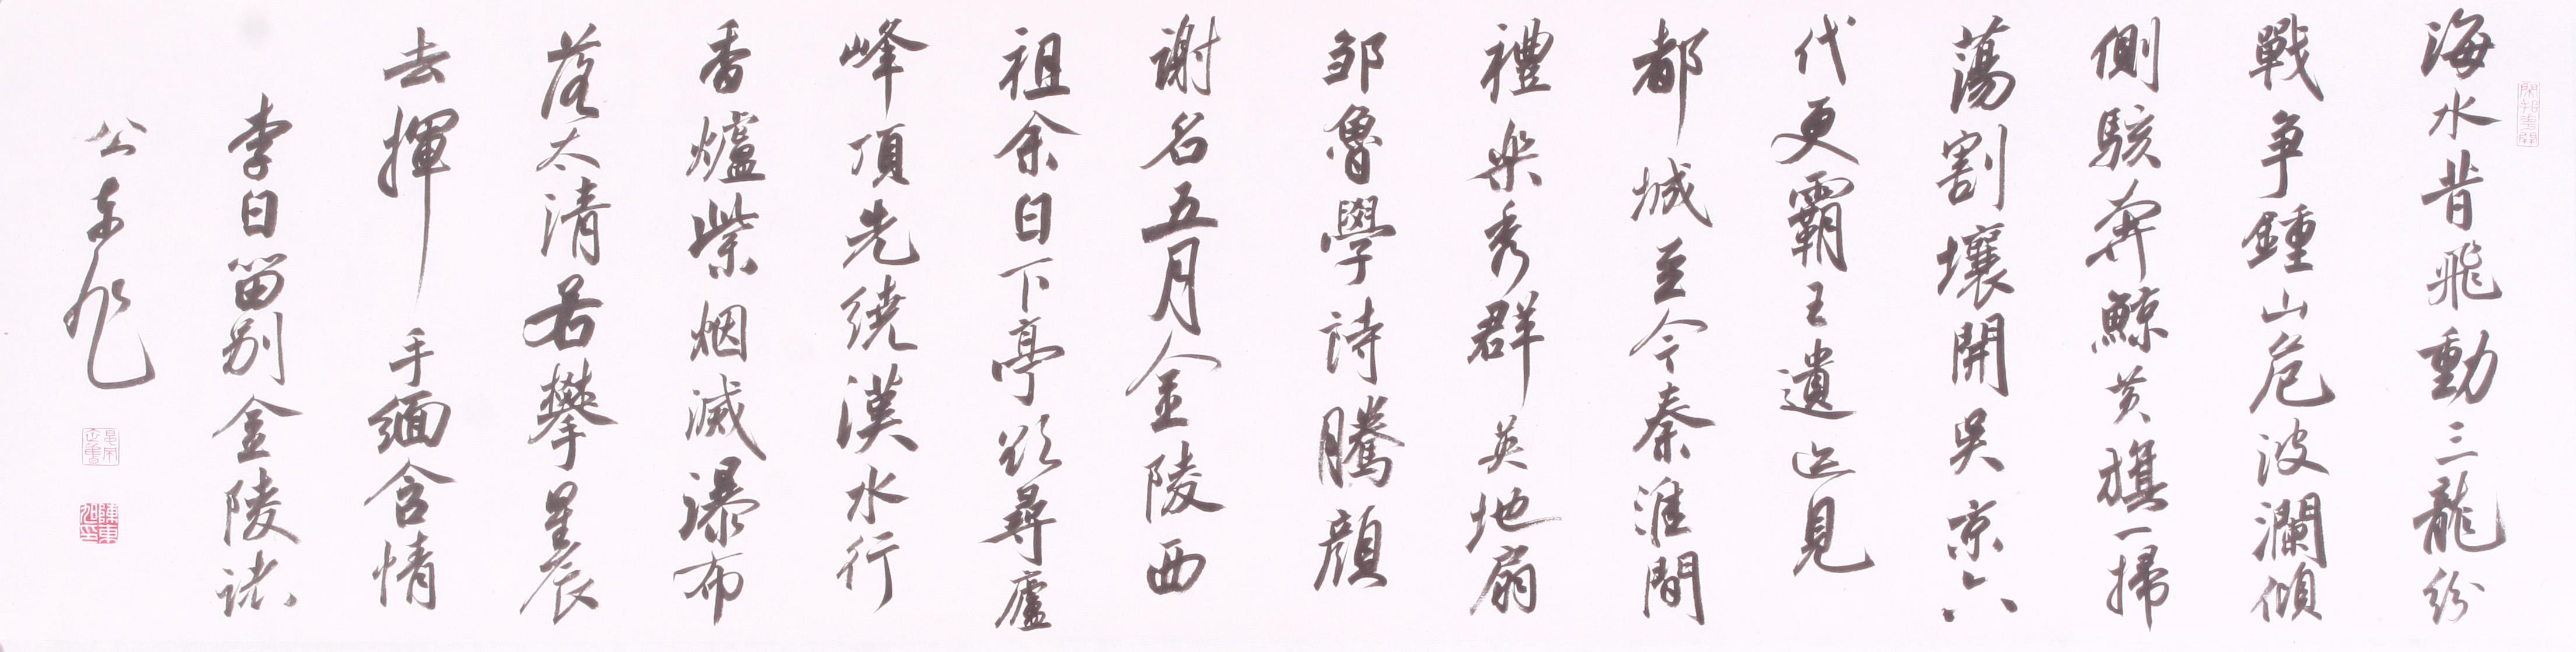 海水昔飛動三龍紛
戰争鍾山危波瀾傾
側駭奔鯨黄旗一掃
蕩割壤開吴京六
代更霸王遺迹見
都城至今秦淮間
禮樂秀群英地扇
邹魯學詩騰顔
謝名五月金陵西
祖余白下亭欲尋廬
峰頂先繞漢水行
香爐紫烟滅瀑布
落太清若攀星辰
去揮手緬含情
李白留别金陵諸
公東旭
陳東旭印